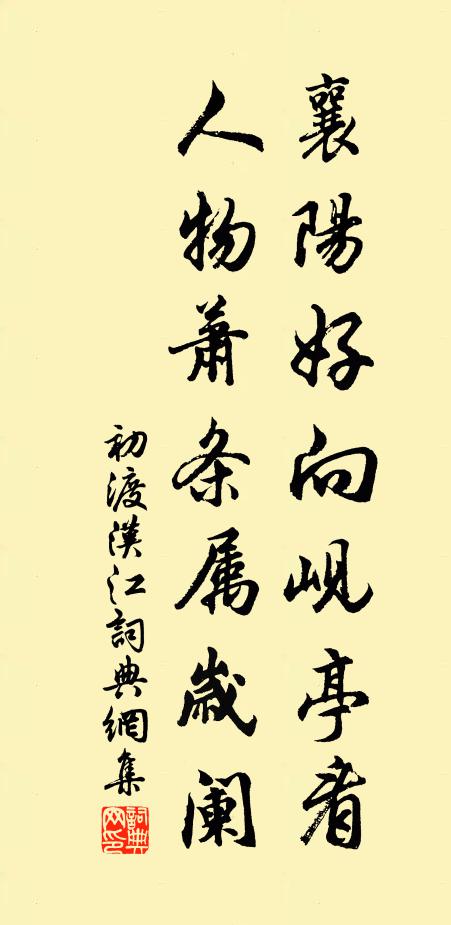 襄陽好向峴亭看
人物蕭条属歲闌
初渡漢江詞典網集
詞典网印